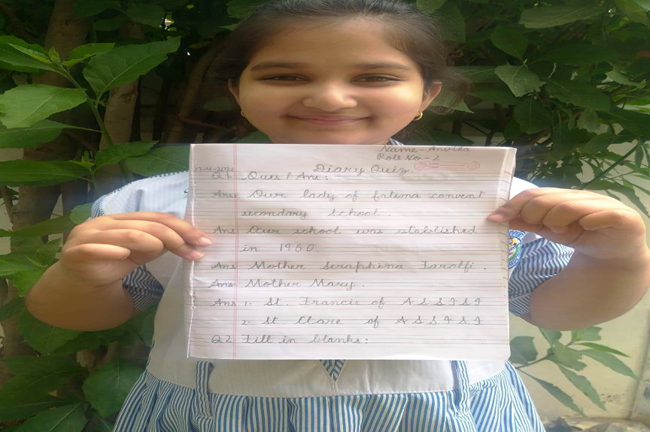 Name - Anvika
Roll No - 2
Diary Quiz.
Q1. Ques / Ans :
Ans Our lady of fatima convent
secondary school.
Ans Our school was established
in 1960.
Ans Mother Seraphina Farolfi.
Ans Mother Mary.
Ans 1. St. Francis of ASSISI
2. St Clare of ASSISI
Q2 Fill in blanks: